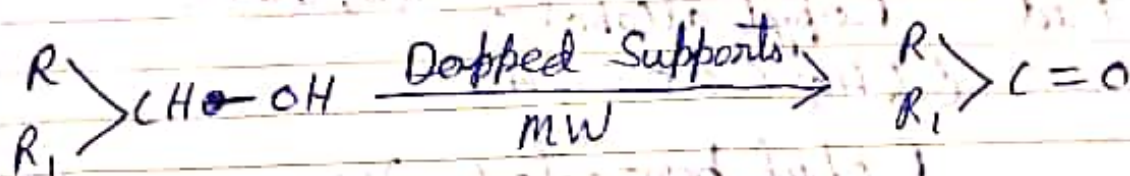 R
R₁ >CH-OH Dopped Supports MW → R
R₁ >C=O